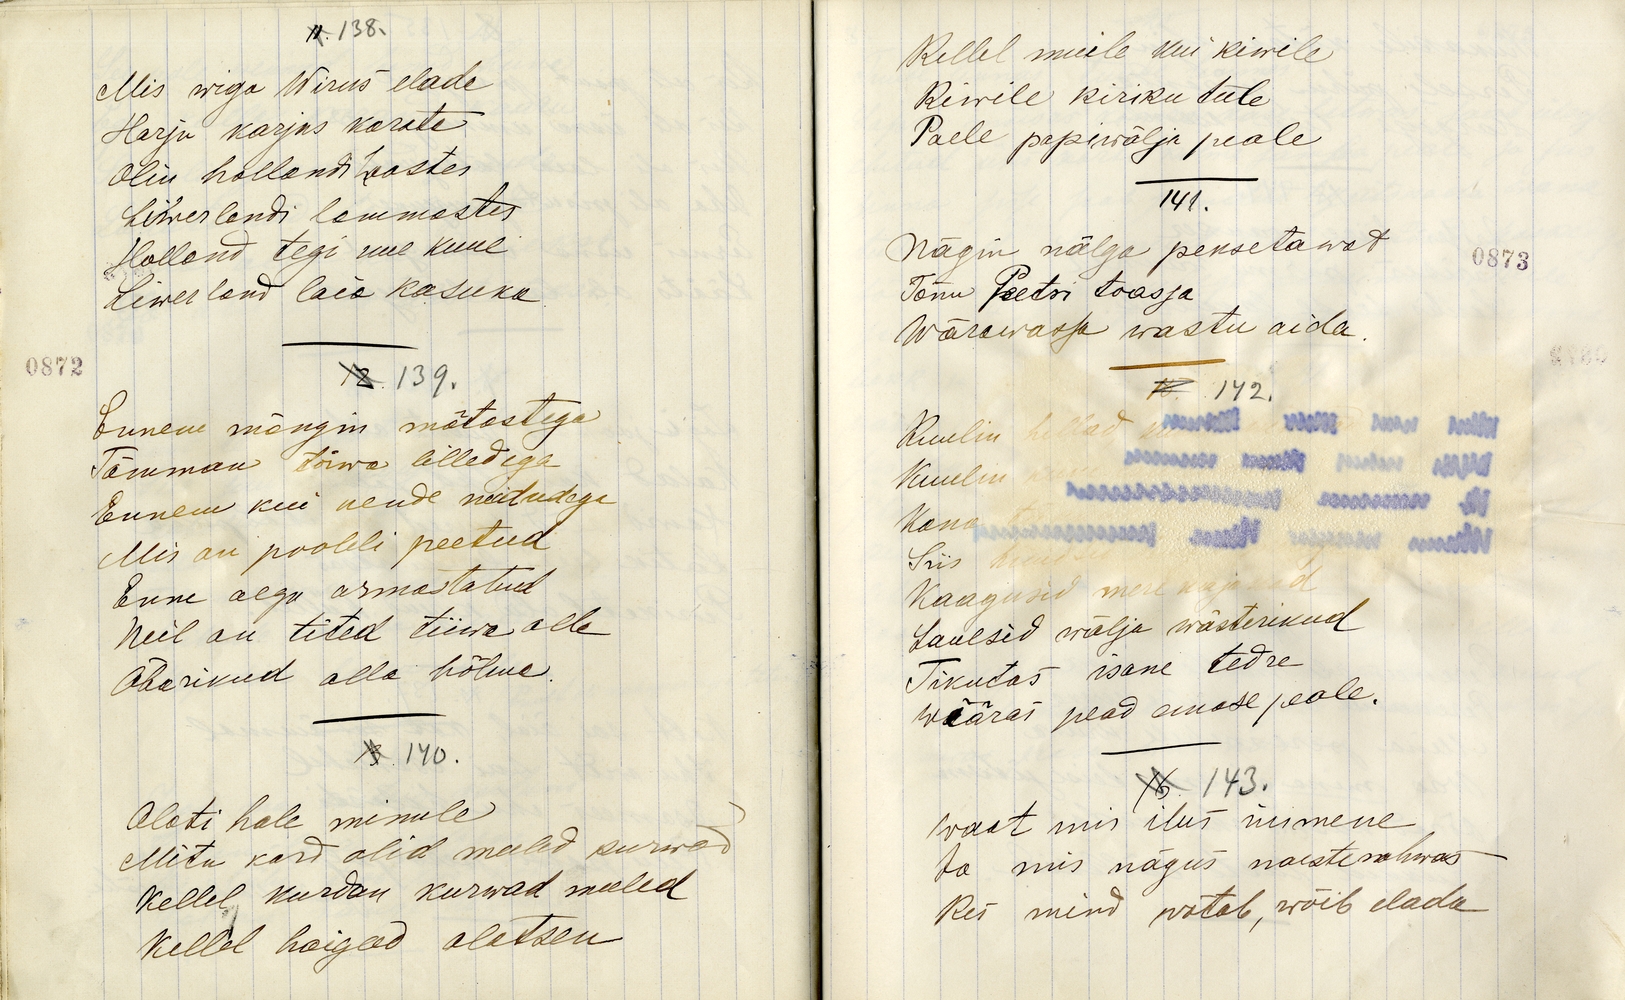 138.
Mis wiga Wirus elade
Harju karjas karata
Olin hollandi lastes
Liiwerlandi lammastes
Holland tegi uue kuue
Liwerland laia kasuka
0872
12. 139.
Ennem mängin mätastega
Tamman tõrwa lilledega
Ennem kui nende neidudega
Mis on pooleli peetud
Enne aegu armastatud
Neil on tited tiiwa alle
Äbarikud alla hõlma.
140.
Oleti hale minule
Mitu kord olid meeled kurwad
Kellel kurdan kurwad meeled
Kellel haiged
Kellel meile kui kiwile
Kiwile kiriku
Paele papiwälja peale
141.
Nägin nälga peksetawat
Tõnu Peetri toassa
Wärawassa wastu aida.
0873
142.
Kuulin hellad
Kuulin
Kana
Siis
Kaagusid mere kajakad
Laulsid wälja wästerikud
Tikutas isane tedre
Wääras pead emase peale.
143.
Waat mis ilus inimene
Ja mis nägus naesterahwas
Kes mind wotab, wõib elada